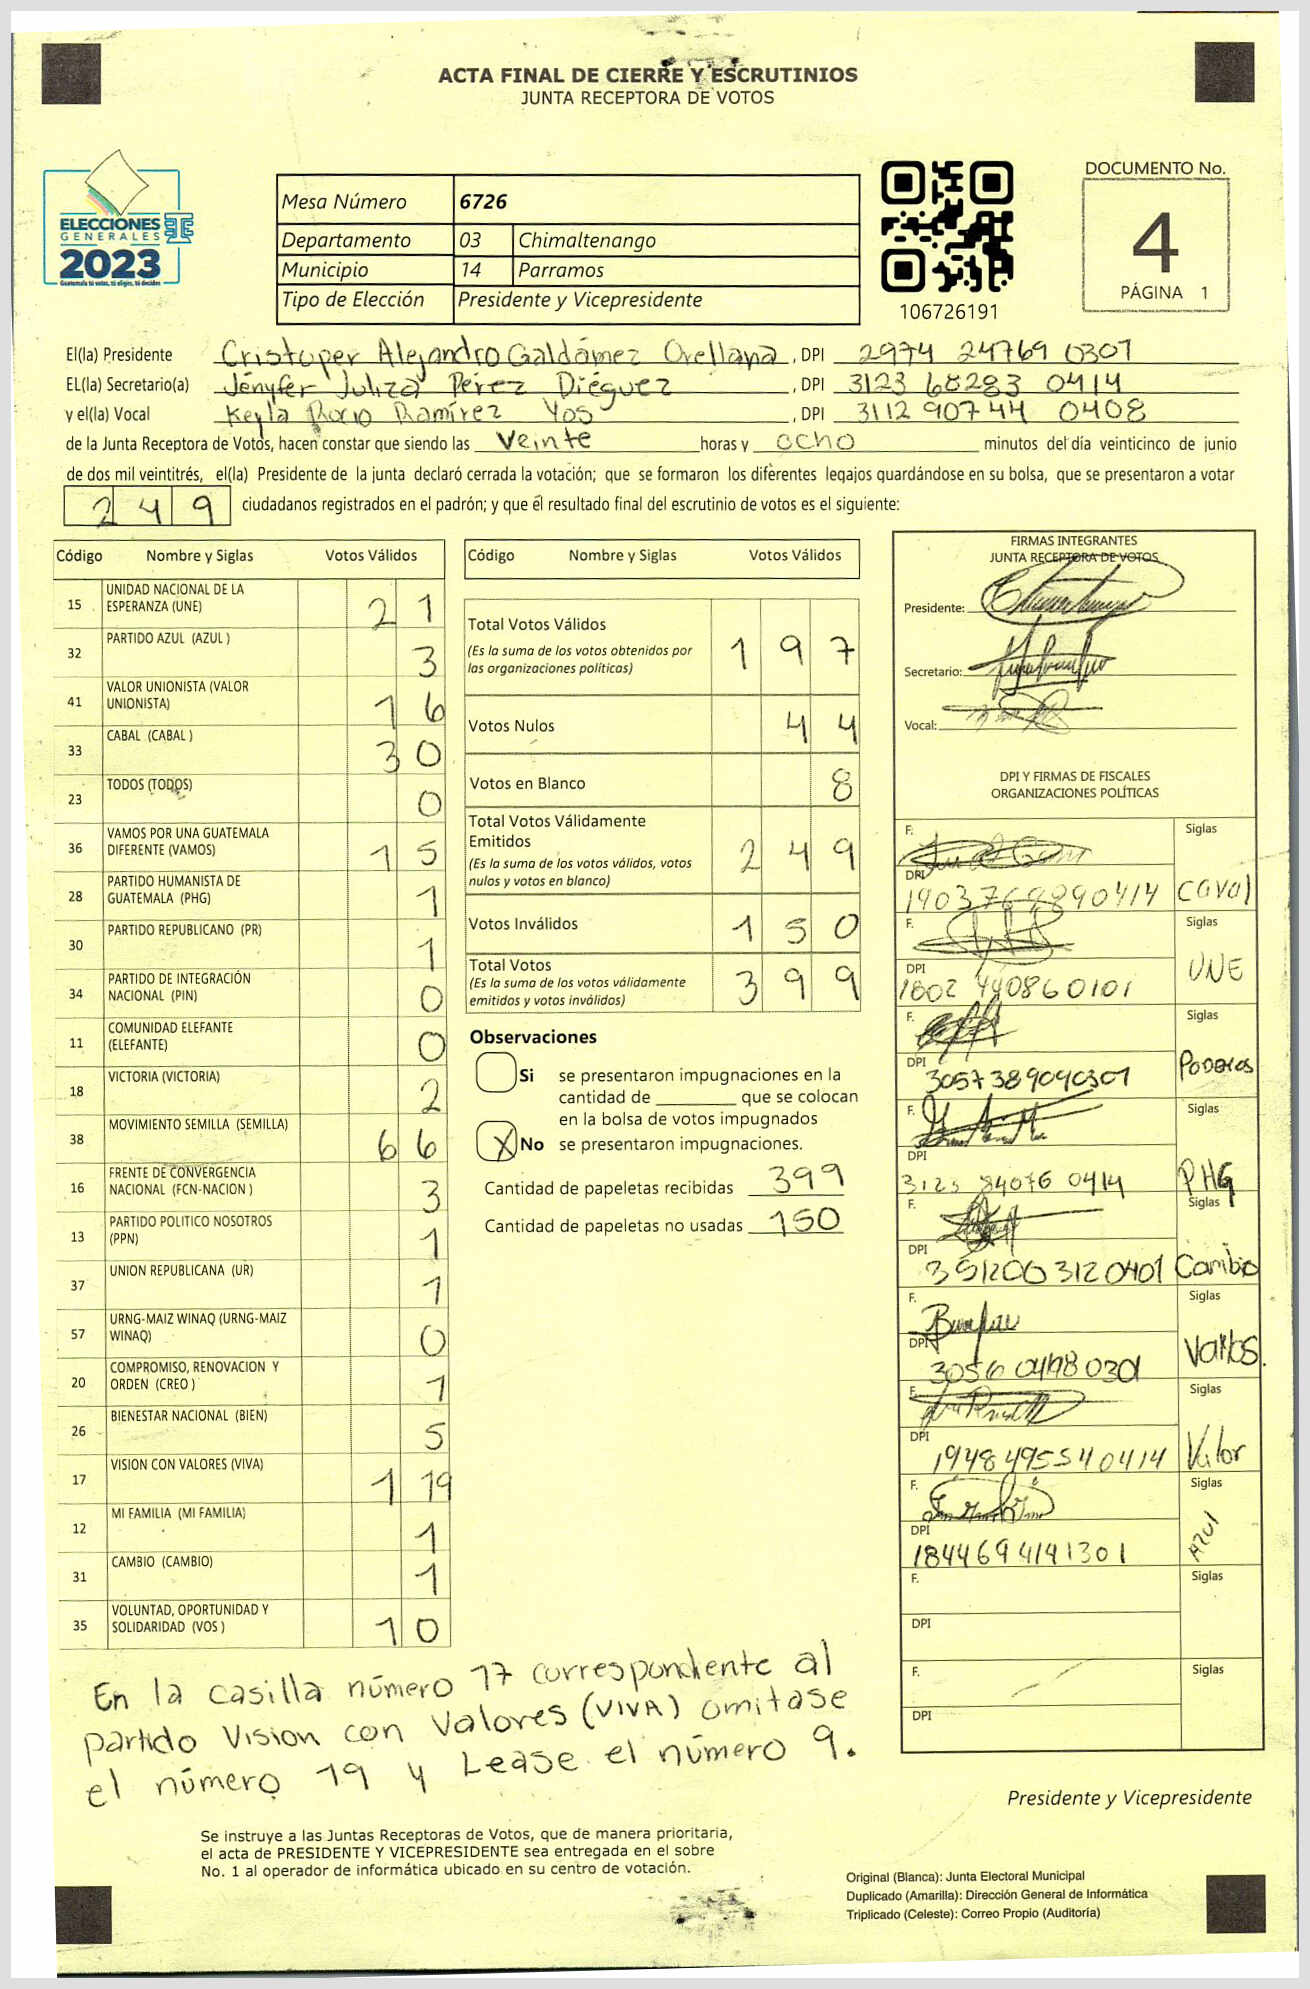 ACTA FINAL DE CIERRE Y ESCRUTINIOS
JUNTA RECEPTORA DE VOTOS
ELECCIONES
GENERALES
2023
Guatemala tú votas, tú eliges, tú decides
Mesa Número 6726
Departamento 03 Chimaltenango
Municipio 14 Parramos
Tipo de Elección Presidente y Vicepresidente
106726191
DOCUMENTO No.
4
PÁGINA 1
El(la) Presidente Cristoper Alejandro Galdámez Orellana, DPI 2974 24769 0301
EL(la) Secretario(a) Jényfer Juliza Pérez Diéguez, DPI 3123 68283 0414
y el(la) Vocal Keyla Rocio Ramírez Yos, DPI 3112 90744 0408
de la Junta Receptora de Votos, hacen constar que siendo las veinte horas y ocho minutos del día veinticinco de junio
de dos mil veintitrés, el(la) Presidente de la junta declaró cerrada la votación; que se formaron los diferentes legajos guardándose en su bolsa, que se presentaron a votar
249 ciudadanos registrados en el padrón; y que el resultado final del escrutinio de votos es el siguiente:
Código Nombre y Siglas Votos Válidos
15 UNIDAD NACIONAL DE LA ESPERANZA (UNE) 21
32 PARTIDO AZUL (AZUL ) 3
41 VALOR UNIONISTA (VALOR UNIONISTA) 16
33 CABAL (CABAL ) 30
23 TODOS (TODOS) 0
36 VAMOS POR UNA GUATEMALA DIFERENTE (VAMOS) 15
28 PARTIDO HUMANISTA DE GUATEMALA (PHG) 1
30 PARTIDO REPUBLICANO (PR) 1
34 PARTIDO DE INTEGRACIÓN NACIONAL (PIN) 0
11 COMUNIDAD ELEFANTE (ELEFANTE) 0
18 VICTORIA (VICTORIA) 2
38 MOVIMIENTO SEMILLA (SEMILLA) 66
16 FRENTE DE CONVERGENCIA NACIONAL (FCN-NACION ) 3
13 PARTIDO POLITICO NOSOTROS (PPN) 1
37 UNION REPUBLICANA (UR) 1
57 URNG-MAIZ WINAQ (URNG-MAIZ WINAQ) 0
20 COMPROMISO, RENOVACION Y ORDEN (CREO ) 1
26 BIENESTAR NACIONAL (BIEN) 5
17 VISION CON VALORES (VIVA) 1 19
12 MI FAMILIA (MI FAMILIA) 1
31 CAMBIO (CAMBIO) 1
35 VOLUNTAD, OPORTUNIDAD Y SOLIDARIDAD (VOS ) 10
Código Nombre y Siglas Votos Válidos
Total Votos Válidos 197
(Es la suma de los votos obtenidos por
las organizaciones políticas)
Votos Nulos 44
Votos en Blanco 8
Total Votos Válidamente
Emitidos 249
(Es la suma de los votos válidos, votos
nulos y votos en blanco)
Votos Inválidos 150
Total Votos 399
(Es la suma de los votos válidamente
emitidos y votos inválidos)
Observaciones
Si se presentaron impugnaciones en la
cantidad de ________ que se colocan
en la bolsa de votos impugnados
X No se presentaron impugnaciones.
Cantidad de papeletas recibidas 399
Cantidad de papeletas no usadas 150
FIRMAS INTEGRANTES
JUNTA RECEPTORA DE VOTOS
Presidente:
Secretario:
Vocal:
DPI Y FIRMAS DE FISCALES
ORGANIZACIONES POLÍTICAS
F. Siglas
DPI 1903769890414 Caval
F. Siglas
DPI 1802 440860101 UNE
F. Siglas
DPI 3057389090301 Poderos
F. Siglas
DPI 3125 84076 0414 PHG
F. Siglas
DPI 3512003120401 Cambio
F. Siglas
DPI 3056 04198 0301 Vamos.
F. Siglas
DPI 1948495540414 Valor
F. Siglas
DPI 1844694141301 Azul
F. Siglas
DPI
F. Siglas
DPI
En la casilla número 17 correspondiente al
partido Vision con Valores (VIVA) omitase
el número 19 y Lease el número 9.
Presidente y Vicepresidente
Se instruye a las Juntas Receptoras de Votos, que de manera prioritaria,
el acta de PRESIDENTE Y VICEPRESIDENTE sea entregada en el sobre
No. 1 al operador de informática ubicado en su centro de votación.
Original (Blanca): Junta Electoral Municipal
Duplicado (Amarilla): Dirección General de Informática
Triplicado (Celeste): Correo Propio (Auditoría)